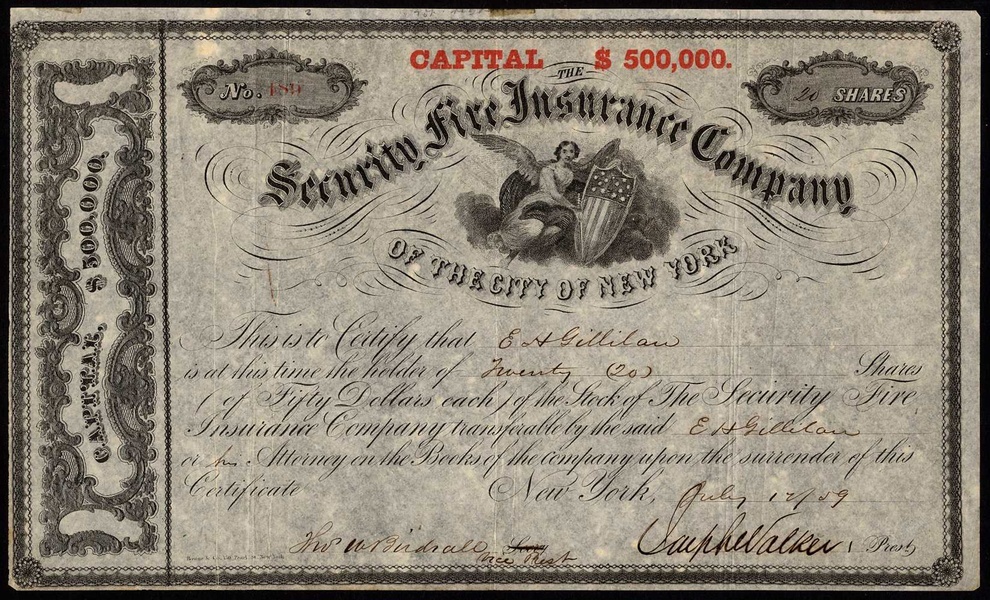 CAPITAL $ 500,000.
No. 189
20 SHARES
THE
Security Fire Insurance Company
OF THE CITY OF NEW YORK
CAPITAL, $ 500,000.
This is to Certify that E H Gillilan
is at this time the holder of Twenty (20) Shares
( of Fifty Dollars each ) of the Stock of The Security Fire
Insurance Company transferable by the said E H Gillilan
or his Attorney on the Books of the company upon the surrender of this
Certificate New York, July 12/59
Thos W Birdsall Vice Prest
Joseph Walker Prest